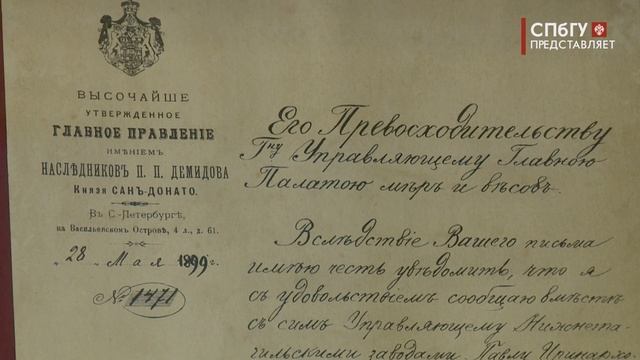 СПбГУ
ПРЕДСТАВЛЯЕТ
ВЫСОЧАЙШЕ
УТВЕРЖДЕННОЕ
ГЛАВНОЕ ПРАВЛЕНІЕ
ИМѢНІЕМЪ
НАСЛѢДНИКОВЪ П. П. ДЕМИДОВА
Князя САНЪ-ДОНАТО.
Въ С.-Петербургѣ,
на Васильевскомъ Островѣ, 4 л., д. 61.
„28" Мая 1899 г.
№ 1471
Его Превосходительству
Гну Управляющему Главною
Палатою мѣръ и вѣсовъ.
Вслѣдствіе Вашего письма
имѣю честь увѣдомить, что я
съ удовольствіемъ сообщаю вмѣстѣ
съ симъ Управляющему Нижнета-
гильскими заводами Павлу